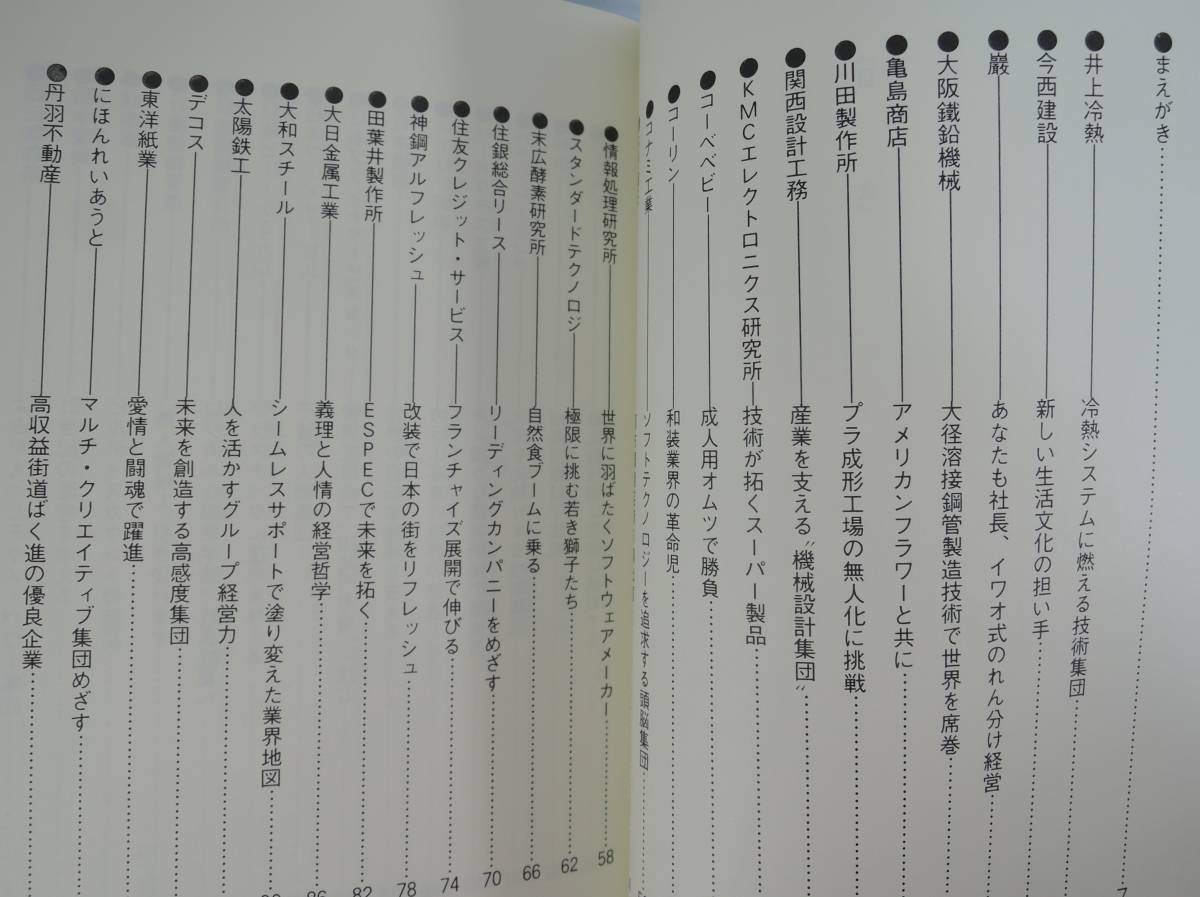 ●まえがき……7
●井上冷熱――冷熱システムに燃える技術集団……
●今西建設――新しい生活文化の担い手……
●巖――あなたも社長、イワオ式のれん分け経営……
●大阪鐵鉛機械――大径溶接鋼管製造技術で世界を席巻……
●亀島商店――アメリカンフラワーと共に……
●川田製作所――プラ成形工場の無人化に挑戦……
●関西設計工務――産業を支える〝機械設計集団〟……
●KMCエレクトロニクス研究所――技術が拓くスーパー製品……
●コーベベビー――成人用オムツで勝負……
●コーリン――和装業界の革命児……
●コナミ工業――ソフトテクノロジーを追求する頭脳集団……
●情報処理研究所――世界に羽ばたくソフトウェアメーカー……58
●スタンダードテクノロジ――極限に挑む若き獅子たち……62
●末広酵素研究所――自然食ブームに乗る……66
●住銀総合リース――リーディングカンパニーをめざす……70
●住友クレジット・サービス――フランチャイズ展開で伸びる……74
●神鋼アルフレッシュ――改装で日本の街をリフレッシュ……78
●田葉井製作所――ESPECで未来を拓く……82
●大日金属工業――義理と人情の経営哲学……86
●大和スチール――シームレスサポートで塗り変えた業界地図……
●太陽鉄工――人を活かすグループ経営力……
●デコス――未来を創造する高感度集団……
●東洋紙業――愛情と闘魂で躍進……
●にほんれいあうと――マルチ・クリエイティブ集団めざす……
●丹羽不動産――高収益街道ばく進の優良企業……